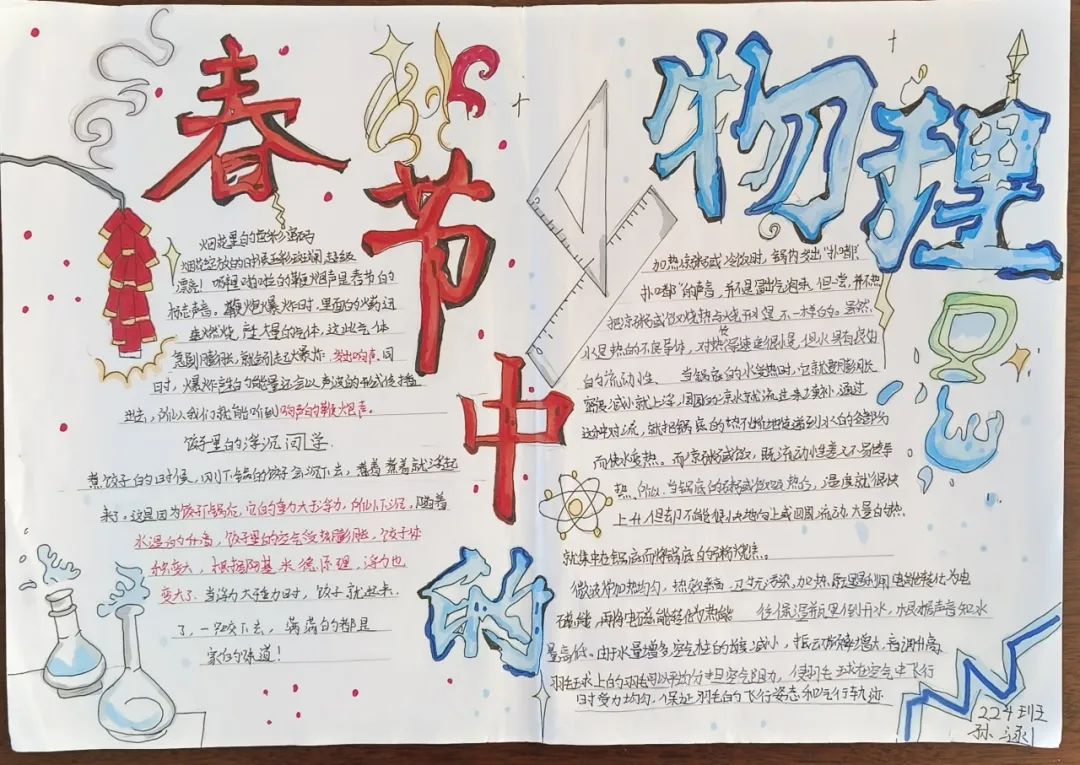 春节中的物理
烟花里的色彩密码
烟花绽放的时候五彩斑斓超级
漂亮！噼里啪啦的鞭炮声是春节的
标志声音。鞭炮爆炸时，里面的火药迅
速燃烧，产生大量的气体，这些气体
急剧膨胀，就会引起爆炸，发出响声。同
时，爆炸产生的能量还会以声波的形式传播
出去，所以我们就能听到响声的鞭炮声。
饺子里的浮沉问学
煮饺子的时候，刚下锅的饺子会沉下去，煮着煮着就浮起
来了，这是因为饺子下锅后，它的重力大于浮力，所以下沉，随着
水温的升高，饺子里的空气受热膨胀，饺子体
积变大，根据阿基米德原理，浮力也
变大了，当浮力大于重力时，饺子就浮起来
了，一口咬下去，满满的都是
家的味道！
加热凉粥或冷饭时，锅内发出"扑嘟
扑嘟"的声音，并不是冒出气泡来，但一尝，并不热
把凉粥或饭烧热与烧开水是不一样的。虽然
水是热的不良导体，对热传导速度很慢，但水具有良好
的流动性。当锅底的水受热时，它就要膨胀
密度减小就上浮，周围的凉水就流过来填补，通过
这种对流，就把锅底的热不断地传递到水的各部分
而使水变热。而凉粥或饭，既流动性差又不易传导
热。所以，当锅底的粥或饭吸热后，温度就很快
上升，但却不能很快地向上或四周流动，大量的热
就集中在锅底而将锅底的粥烧焦。
微波炉加热均匀，热效率高，卫生无污染，加热原理是利用电能转化为电
磁能，再将电磁能转化为热能 往保温瓶里倒开水，根据声音知水
量高低。由于水量增多，空气柱的长度减小，振动频率增大，音调升高。
羽毛球上的羽毛可以平均分担空气阻力，使羽毛球在空气中飞行
时受力均匀，保证羽毛的飞行姿态和飞行轨迹
224班
孙